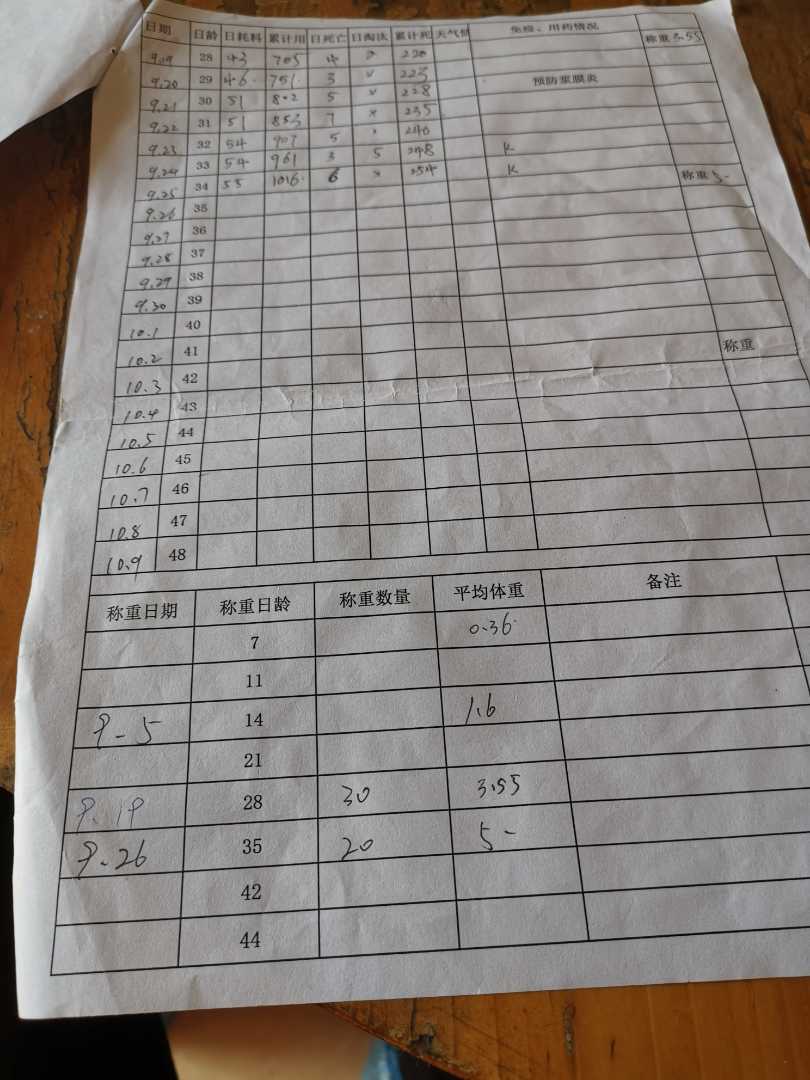 日期 日龄 日耗料 累计用 日死亡 日淘汰 累计死 天气情 免疫、用药情况
9.19 28 43 705 4 220 称重 3.55
9.20 29 46 751 3 x 223
9.21 30 51 802 5 x 228 预防浆膜炎
9.22 31 51 853 7 x 235
9.23 32 54 907 5 x 240
9.24 33 54 961 3 5 248 K
9.25 34 55 1016 6 x 254 K
9.26 35 称重 5-
9.27 36
9.28 37
9.29 38
9.30 39
10.1 40
10.2 41
10.3 42 称重
10.4 43
10.5 44
10.6 45
10.7 46
10.8 47
10.9 48
称重日期 称重日龄 称重数量 平均体重 备注
7 0.36
11
9-5 14 1.6
21
9.19 28 30 3.55
9.26 35 20 5-
42
44